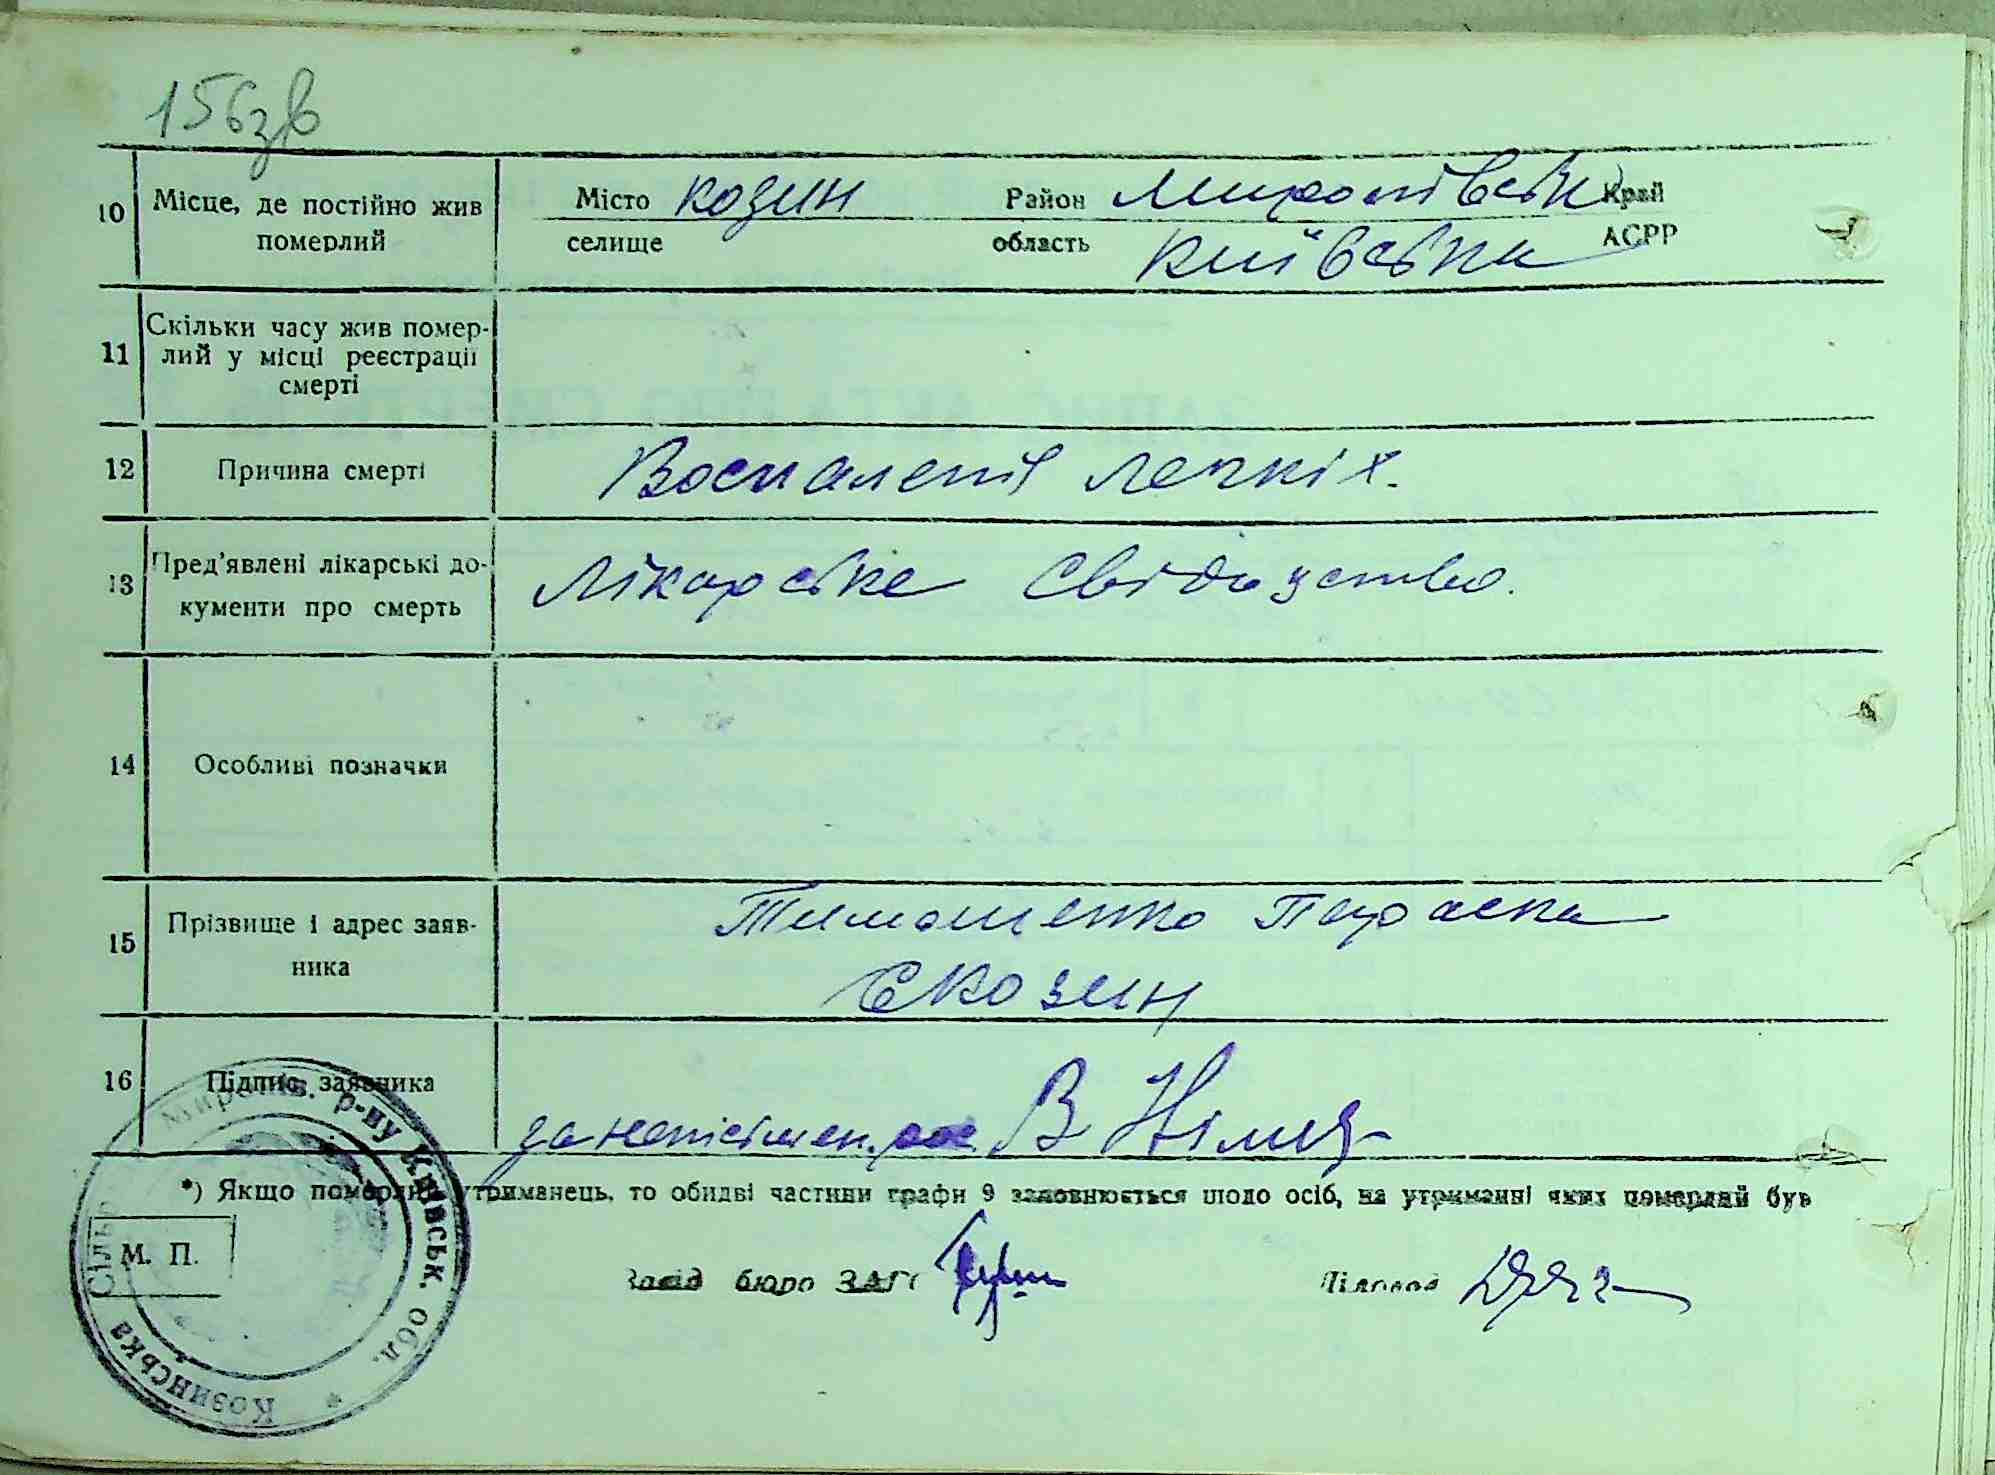 156зв
10 Місце, де постійно жив померлий Місто козин Район Миропівськ Край
селище область Київська АСРР
11 Скільки часу жив помер-
лий у місці реєстрації
смерті
12 Причина смерті Воспаленія легкіх.
13 Пред'явлені лікарські до-
кументи про смерть
Лікарське Свідоцтво.
14 Особливі позначки
15 Прізвище і адрес заяв-
ника
Тимошенко Параска
с Козин
16 Підпис заявника
за неписімен. В
*) Якщо померлий утриманець, то обидві частини графи 9 заповнюється шодо осіб, на утриманні яких померлий був
М. П.
Завід бюро ЗАГС Діловод
Козинська Сільр Миропів. р-ну Київськ. обл.